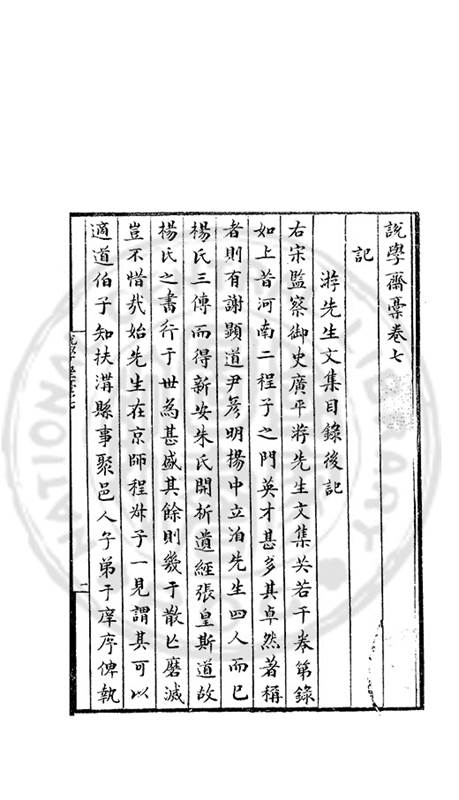 說學齋藁卷七
記
游先生文集目錄後記
右宋監察御史廣平游先生文集若干卷第錄
如上昔河南二程子之門英才甚多其卓然著稱
者則有謝顯道尹彥明楊中立洎先生四人而已
楊氏三傳而得新安朱氏開析遺經張皇斯道故
楊氏之書行于世為甚盛其餘則幾于散亡磨滅
豈不惜哉始先生在京師程叔子一見謂其可以
適道伯子知扶溝縣事聚邑人子弟于庠序俾執
一
NATIONAL
LIBRARY